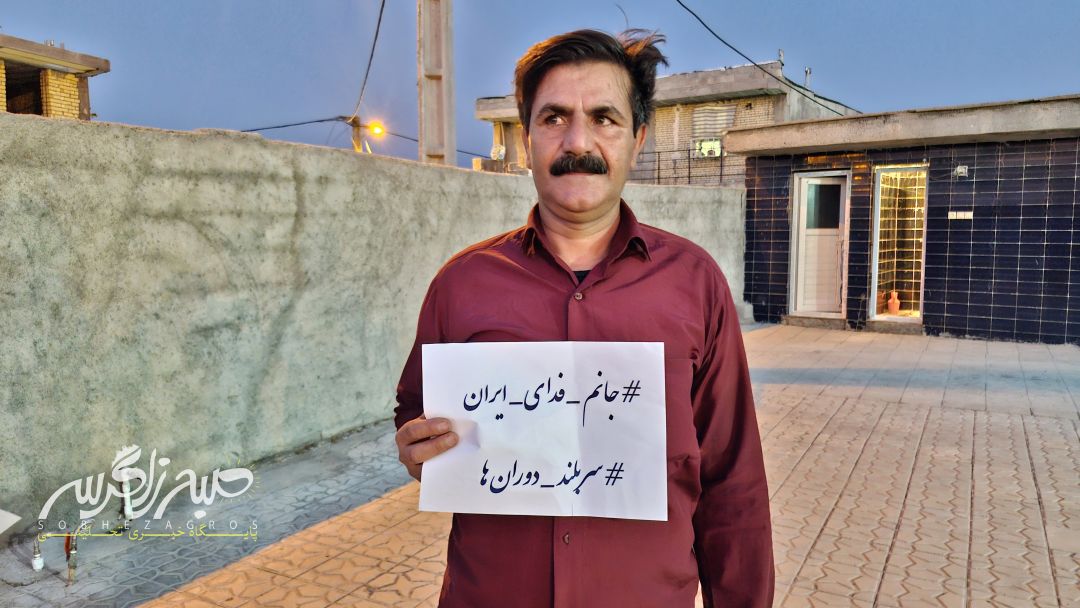 #جانم_فدای_ایران
#سربلند_دوران‌ها
صبح زاگرس
SOBHEZAGROS
پایگاه خبری تحلیلی